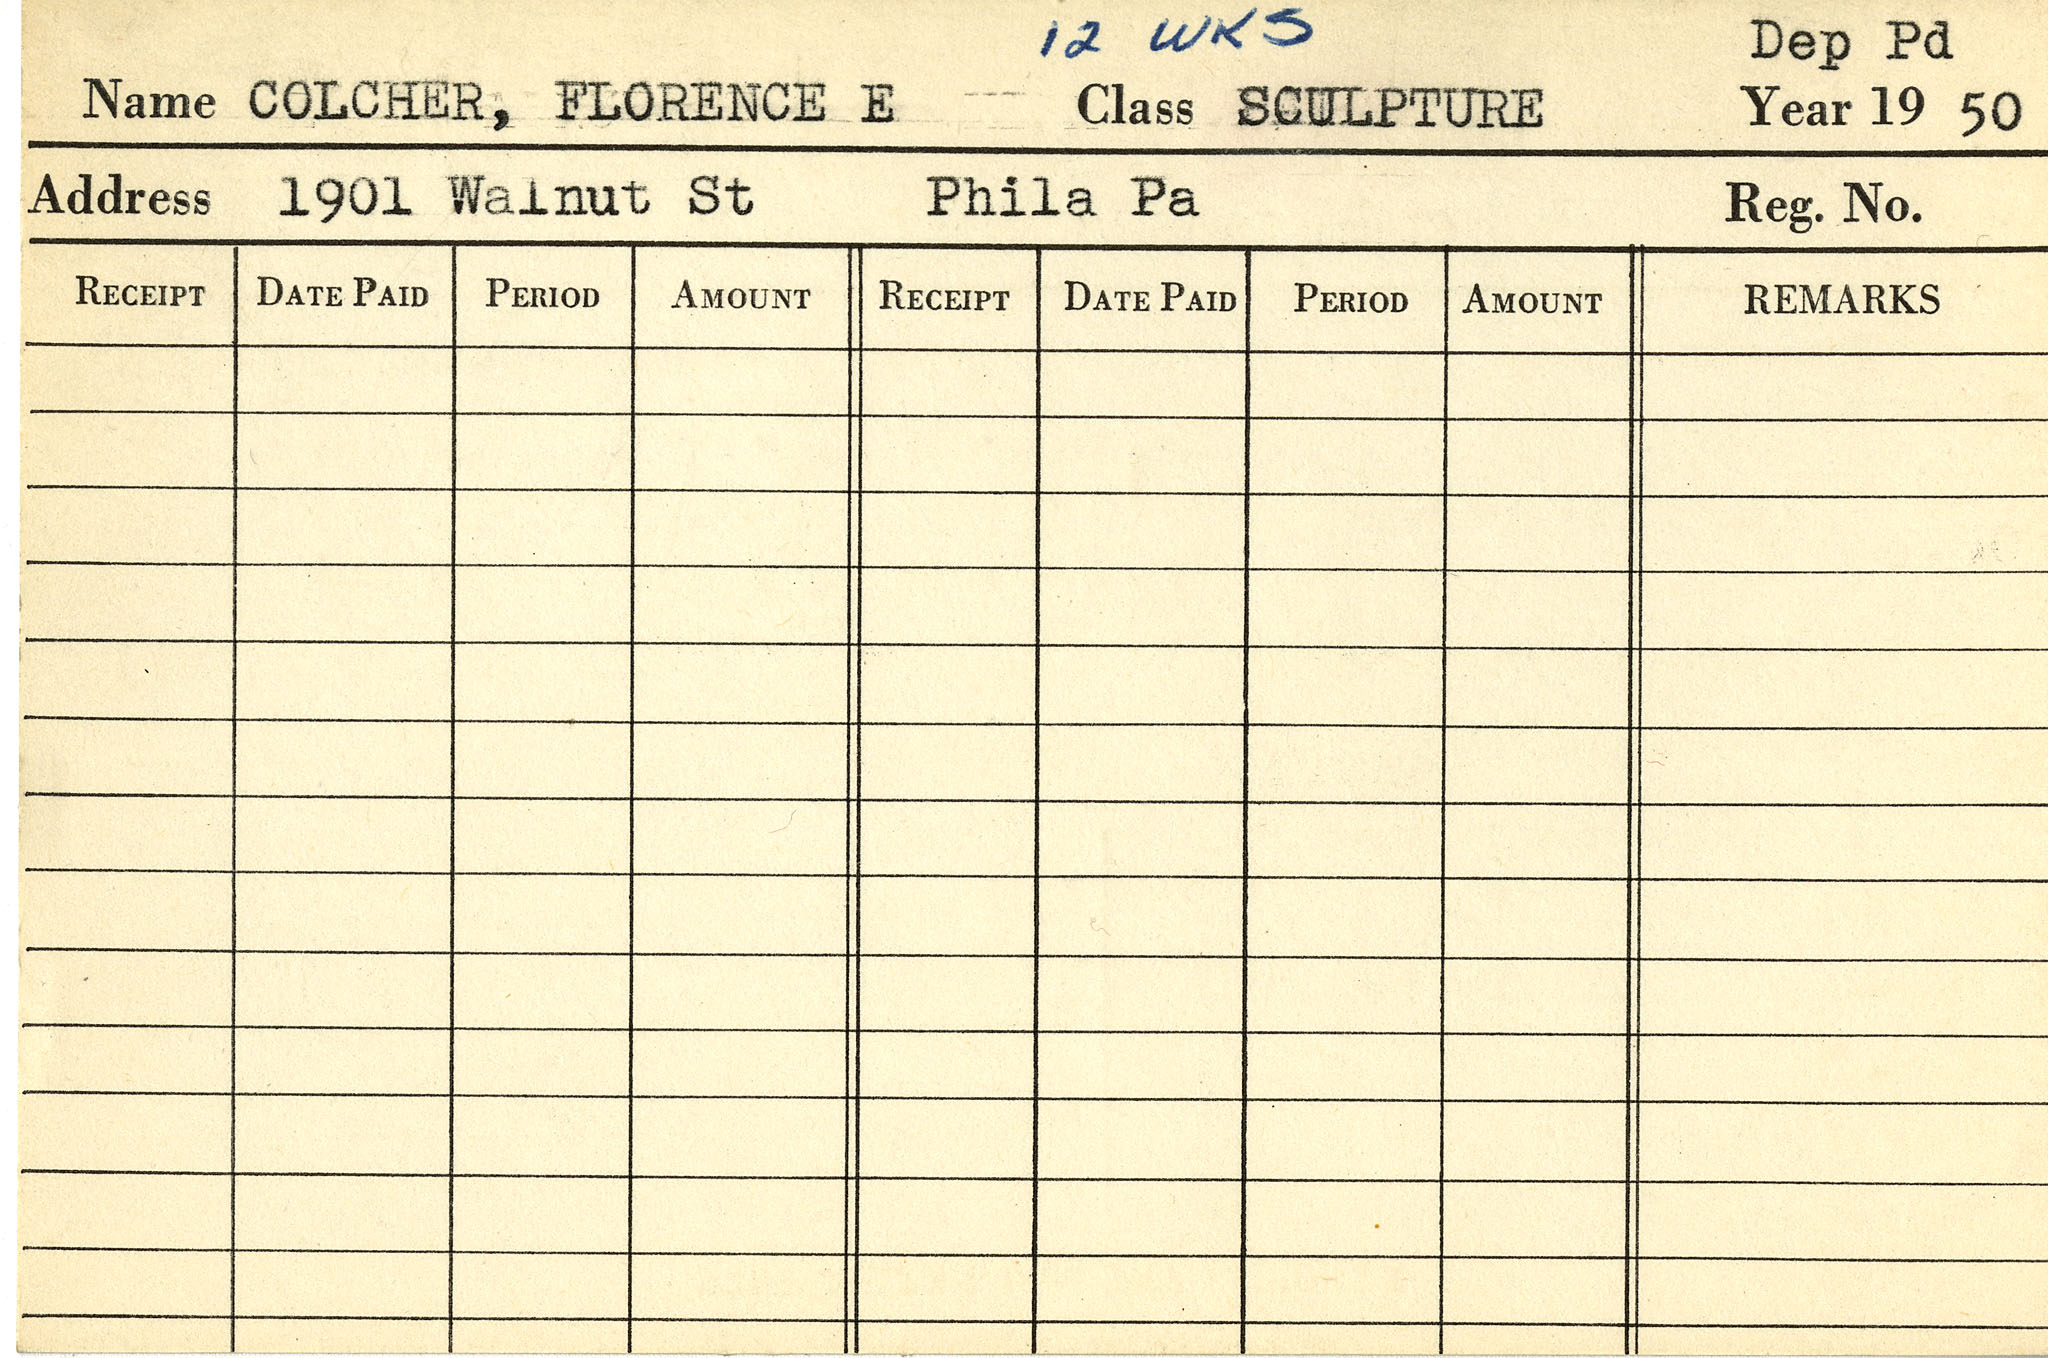 12 WKS Dep Pd
Name COLCHER, FLORENCE E Class SCULPTURE Year 19 50
Address 1901 Walnut St Phila Pa Reg. No.
RECEIPT DATE PAID PERIOD AMOUNT RECEIPT DATE PAID PERIOD AMOUNT REMARKS